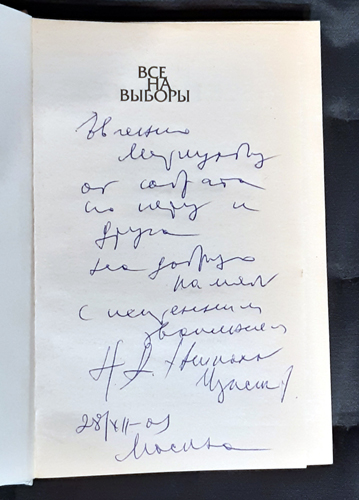 ВСЕ
НА
ВЫБОРЫ
Евгению
от собрата
по перу и
друга
на добрую
память
с искренним
уважением
Н.
28/XII-01
Москва